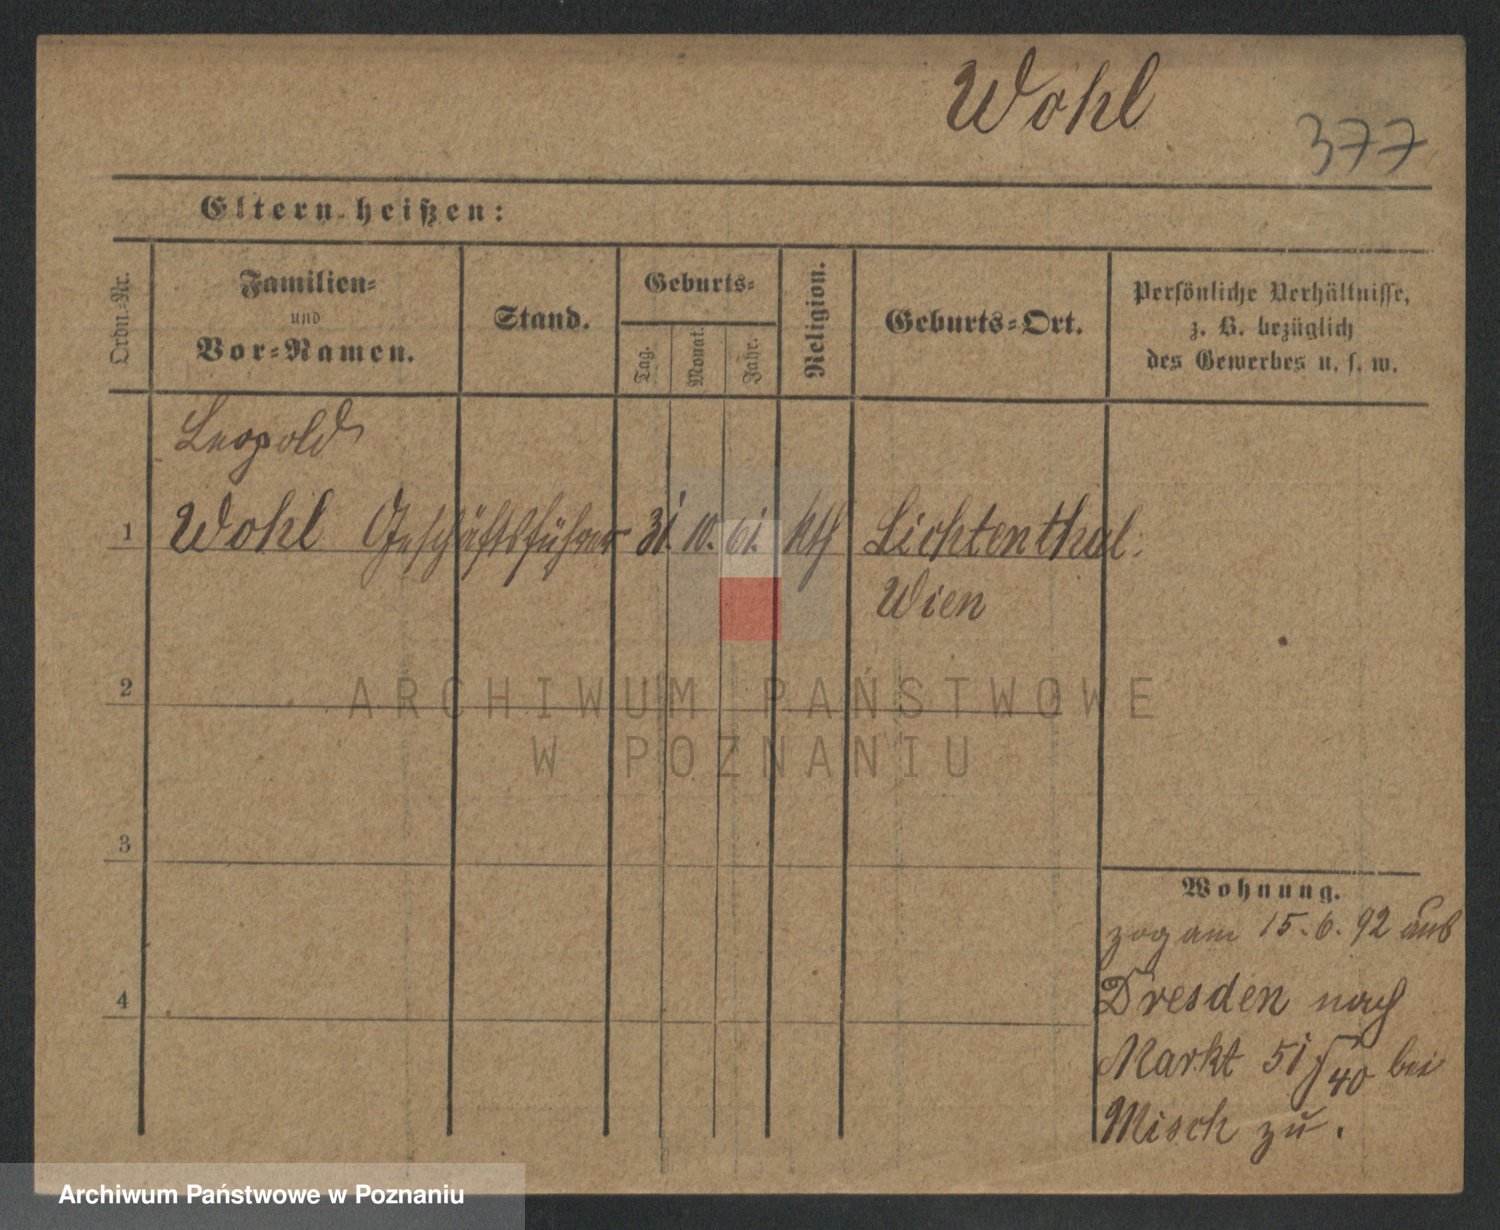 Wohl
377
Eltern heißen:
Ordn.-Nr.
Familien-
und
Vor-Namen.
Stand.
Geburts-
Tag.
Monat.
Jahr.
Religion.
Geburts-Ort.
Persönliche Verhältnisse,
z. B. bezüglich
des Gewerbes u. s. w.
Leopold
1 Wohl Geschäftsführer 31. 10. 61. kth Lichtenthal.
Wien
2
ARCHIWUM PAŃSTWOWE
W POZNANIU
3
Wohnung.
zog am 15. 6. 92 aus
4 Dresden nach
Markt 51/40 bei
Misch zu.
Archiwum Państwowe w Poznaniu